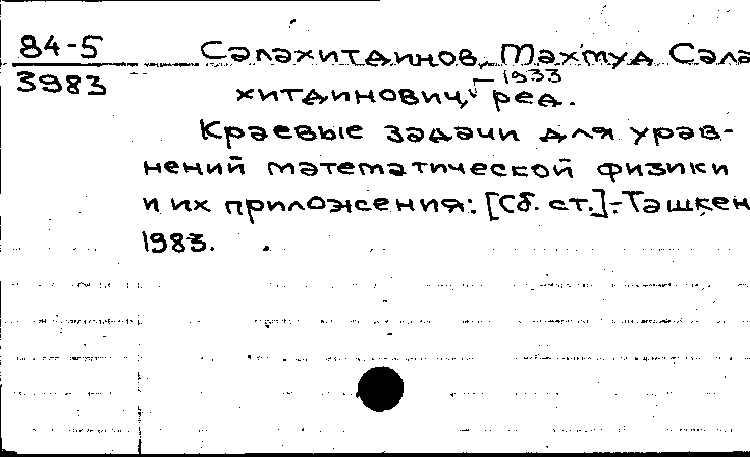 84-5
3983
Салахитдинов, Махмуд Сала
-1933
хитдинович, ред.
Краевые задачи для урав-
нений математической физики
и их приложения: [Сб. ст.].-Ташкен
1983.